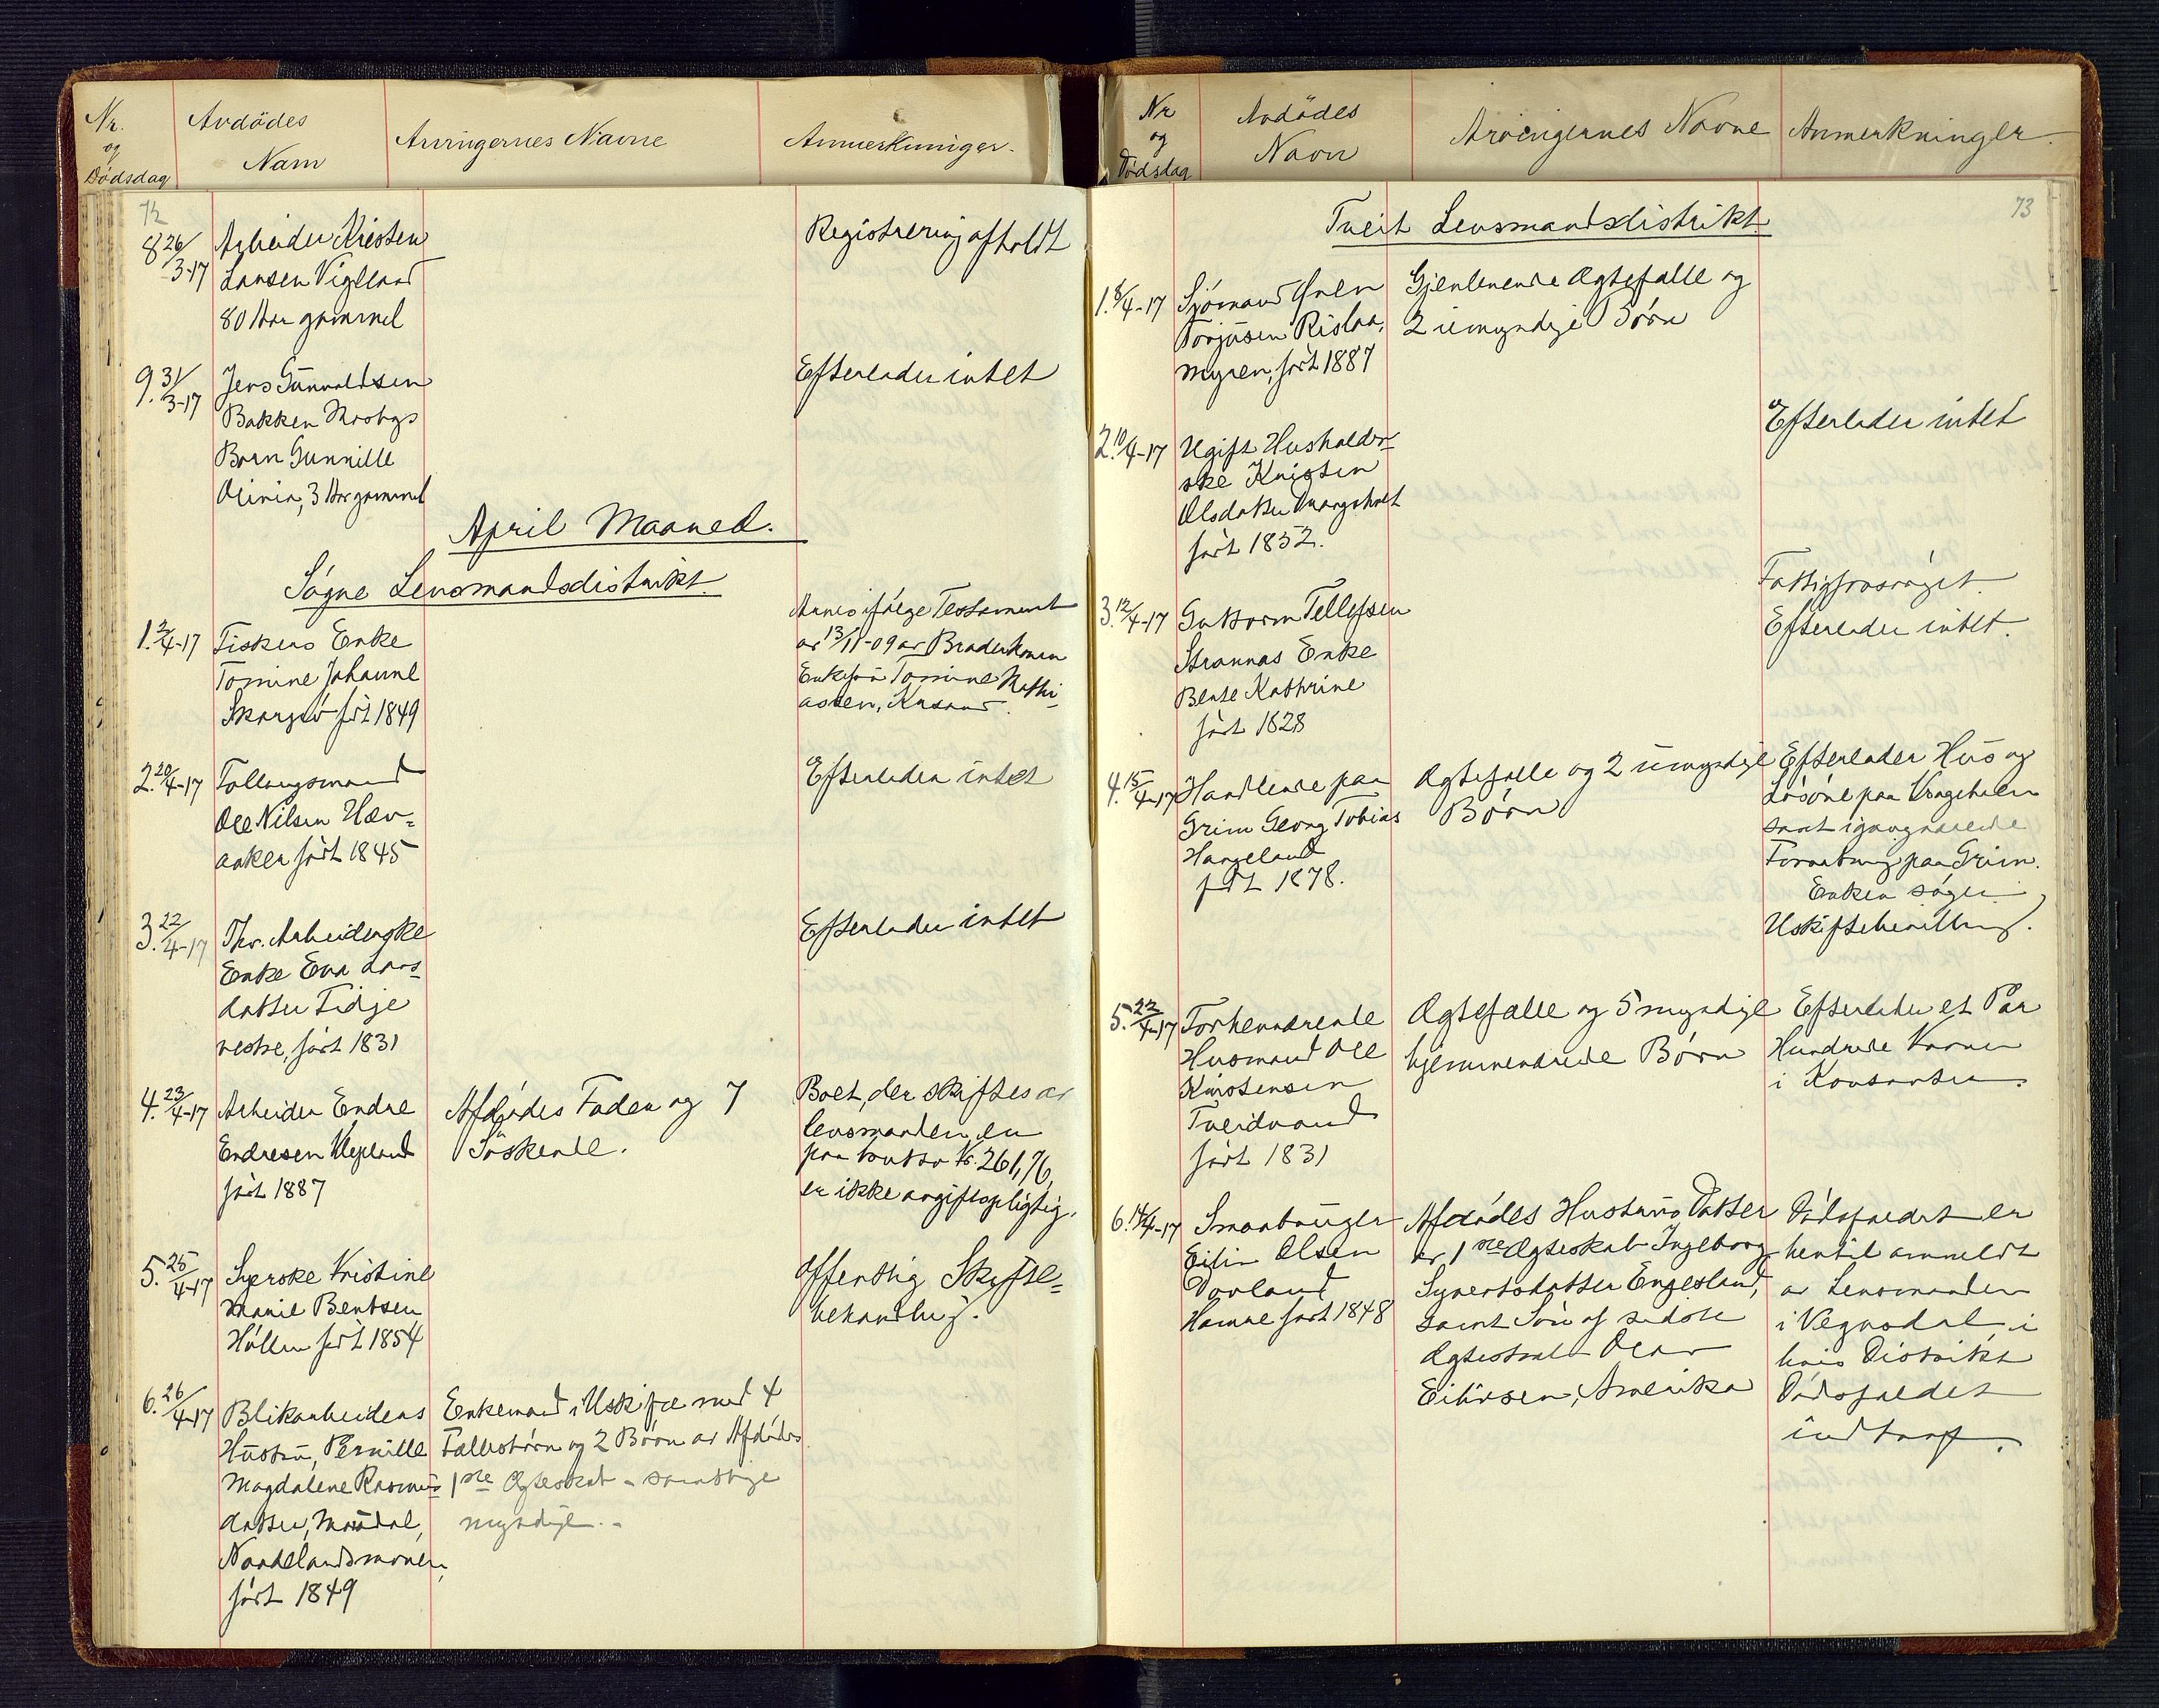 Nr.
og
Dødsdag
Avdödes
Navn
Arvingernes Navne
Anmerkninger.
72
8 26/3-17
Arbeider Kristen
Larsen Vigeland
80 Aar gammel
Registrering afholdt
9. 31/3-17
Jens Gunvaldsen
Bakken
Barn Gunnille
Olivia, 3 Aar gammel
Efterlader intet
April Maaned.
Søgne Lensmandsdistrikt.
1. 2/4-17
Fiskers Enke
Tomine Johanne
født 1849
Arves ifølge Testament
av 13/11-09 av Broderkonen
Enkefru Tomine Mathi-
assen,
2. 20/4-17
Ole Nilsen Hæv-
aaker født 1845
Efterlader intet
3. 22/4-17
Fhv. Arbeiderske
Enke Eva Lars-
datter Tidje
vestre, født 1831
Efterlader intet
4. 23/4-17
Arbeider Endre
Endresen
født 1887
Afdødes Fader og 7
Søskende.
Boet, der skiftes av
lensmanden, er
paa brutto Kr. 261,76,
er ikke avgiftspligtig.
5. 25/4-17
Syerske Kristine
Marie Bentsen
Høllen født 1854
Offentlig Skifte-
behandling.
6. 26/4-17
Blikarbeiders
Hustru, Pernille
Magdalene Rasmus-
datter, Mandal,
Nordelandsmonen,
født 1849
Enkemand i Uskifte med 4
Fællesbørn og 2 Børn av Afdødes
1ste Ægteskab - samtlige
myndige. -
Nr
og
Dødsdag
Avdödes
Navn
Arvingernes Navne
Anmerkninger
73
Tveit Lensmandsdistrikt
1. 8/4-17
Sjømand
Torjusen Rislaa,
myren, født 1887
Gjenlevende Ægtefælle og
2 umyndige Børn
2. 10/4-17
Ugift Husholder-
ske Kristen
Olsdatter
født 1852.
Efterlader intet
3. 12/4-17
Guttorm Tellefsen
Strannas Enke
Bente Kathrine
født 1828
Fattigforsørget.
Efterlader intet.
4. 15/4-17
Handlende paa
Grim Georg Tobias
Haugeland
født 1878.
Ægtefælle og 2 umyndige
Børn
Efterlader Hus og
Løsøre paa
samt igangværende
Forretning paa Grim.
Enken søger
Uskiftebevilling.
5. 22/4-17
Forhenværende
Husmand Ole
Kristensen
Tveidvand
født 1831
Ægtefælle og 5 myndige
hjemmeværende Børn
Efterlader et Par
Hundrede Kroner
i Kontanter.
6. 14/4-17
Smaabruger
Eilif Olsen
Dovland
født 1848
Afdødes Hustrus Datter
av 1ste Ægteskab Ingeborg
Syvertsdatter Engesland,
samt Søn af sidste
Ægteskab Olav
Eilivsen, Amerika
Dødsfaldet er
hertil anmeldt
av Lensmanden
i Vegusdal, i
hvis Distrikt
Dødsfaldet
indtraf.